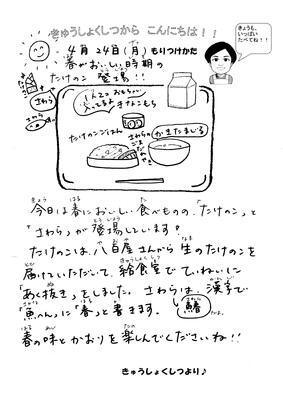 きゅうしょくしつから こんにちは！！
きょうも、
いっぱい
たべてね！！
4月24日(月) もりつけかた
春がおいしい時期の
たけのこ 登場！！
さわら
さわら
1人2つ
おもちゃい
入ってるよ
きなこもち
たけのこごはん
さわらの
ごま
だれ
かきたまじる
今日は春においしい食べもの、「たけのこ」と
「さわら」が登場しています。
たけのこは、八百屋さんから生のたけのこを
届けていただいて、給食室でていねいに
「あく抜き」をしました。さわらは、漢字で
「魚へん」に「春」と書きます。鰆 だよ。
春の味とかおりを楽しんでくださいね！！
きゅうしょくしつより♪